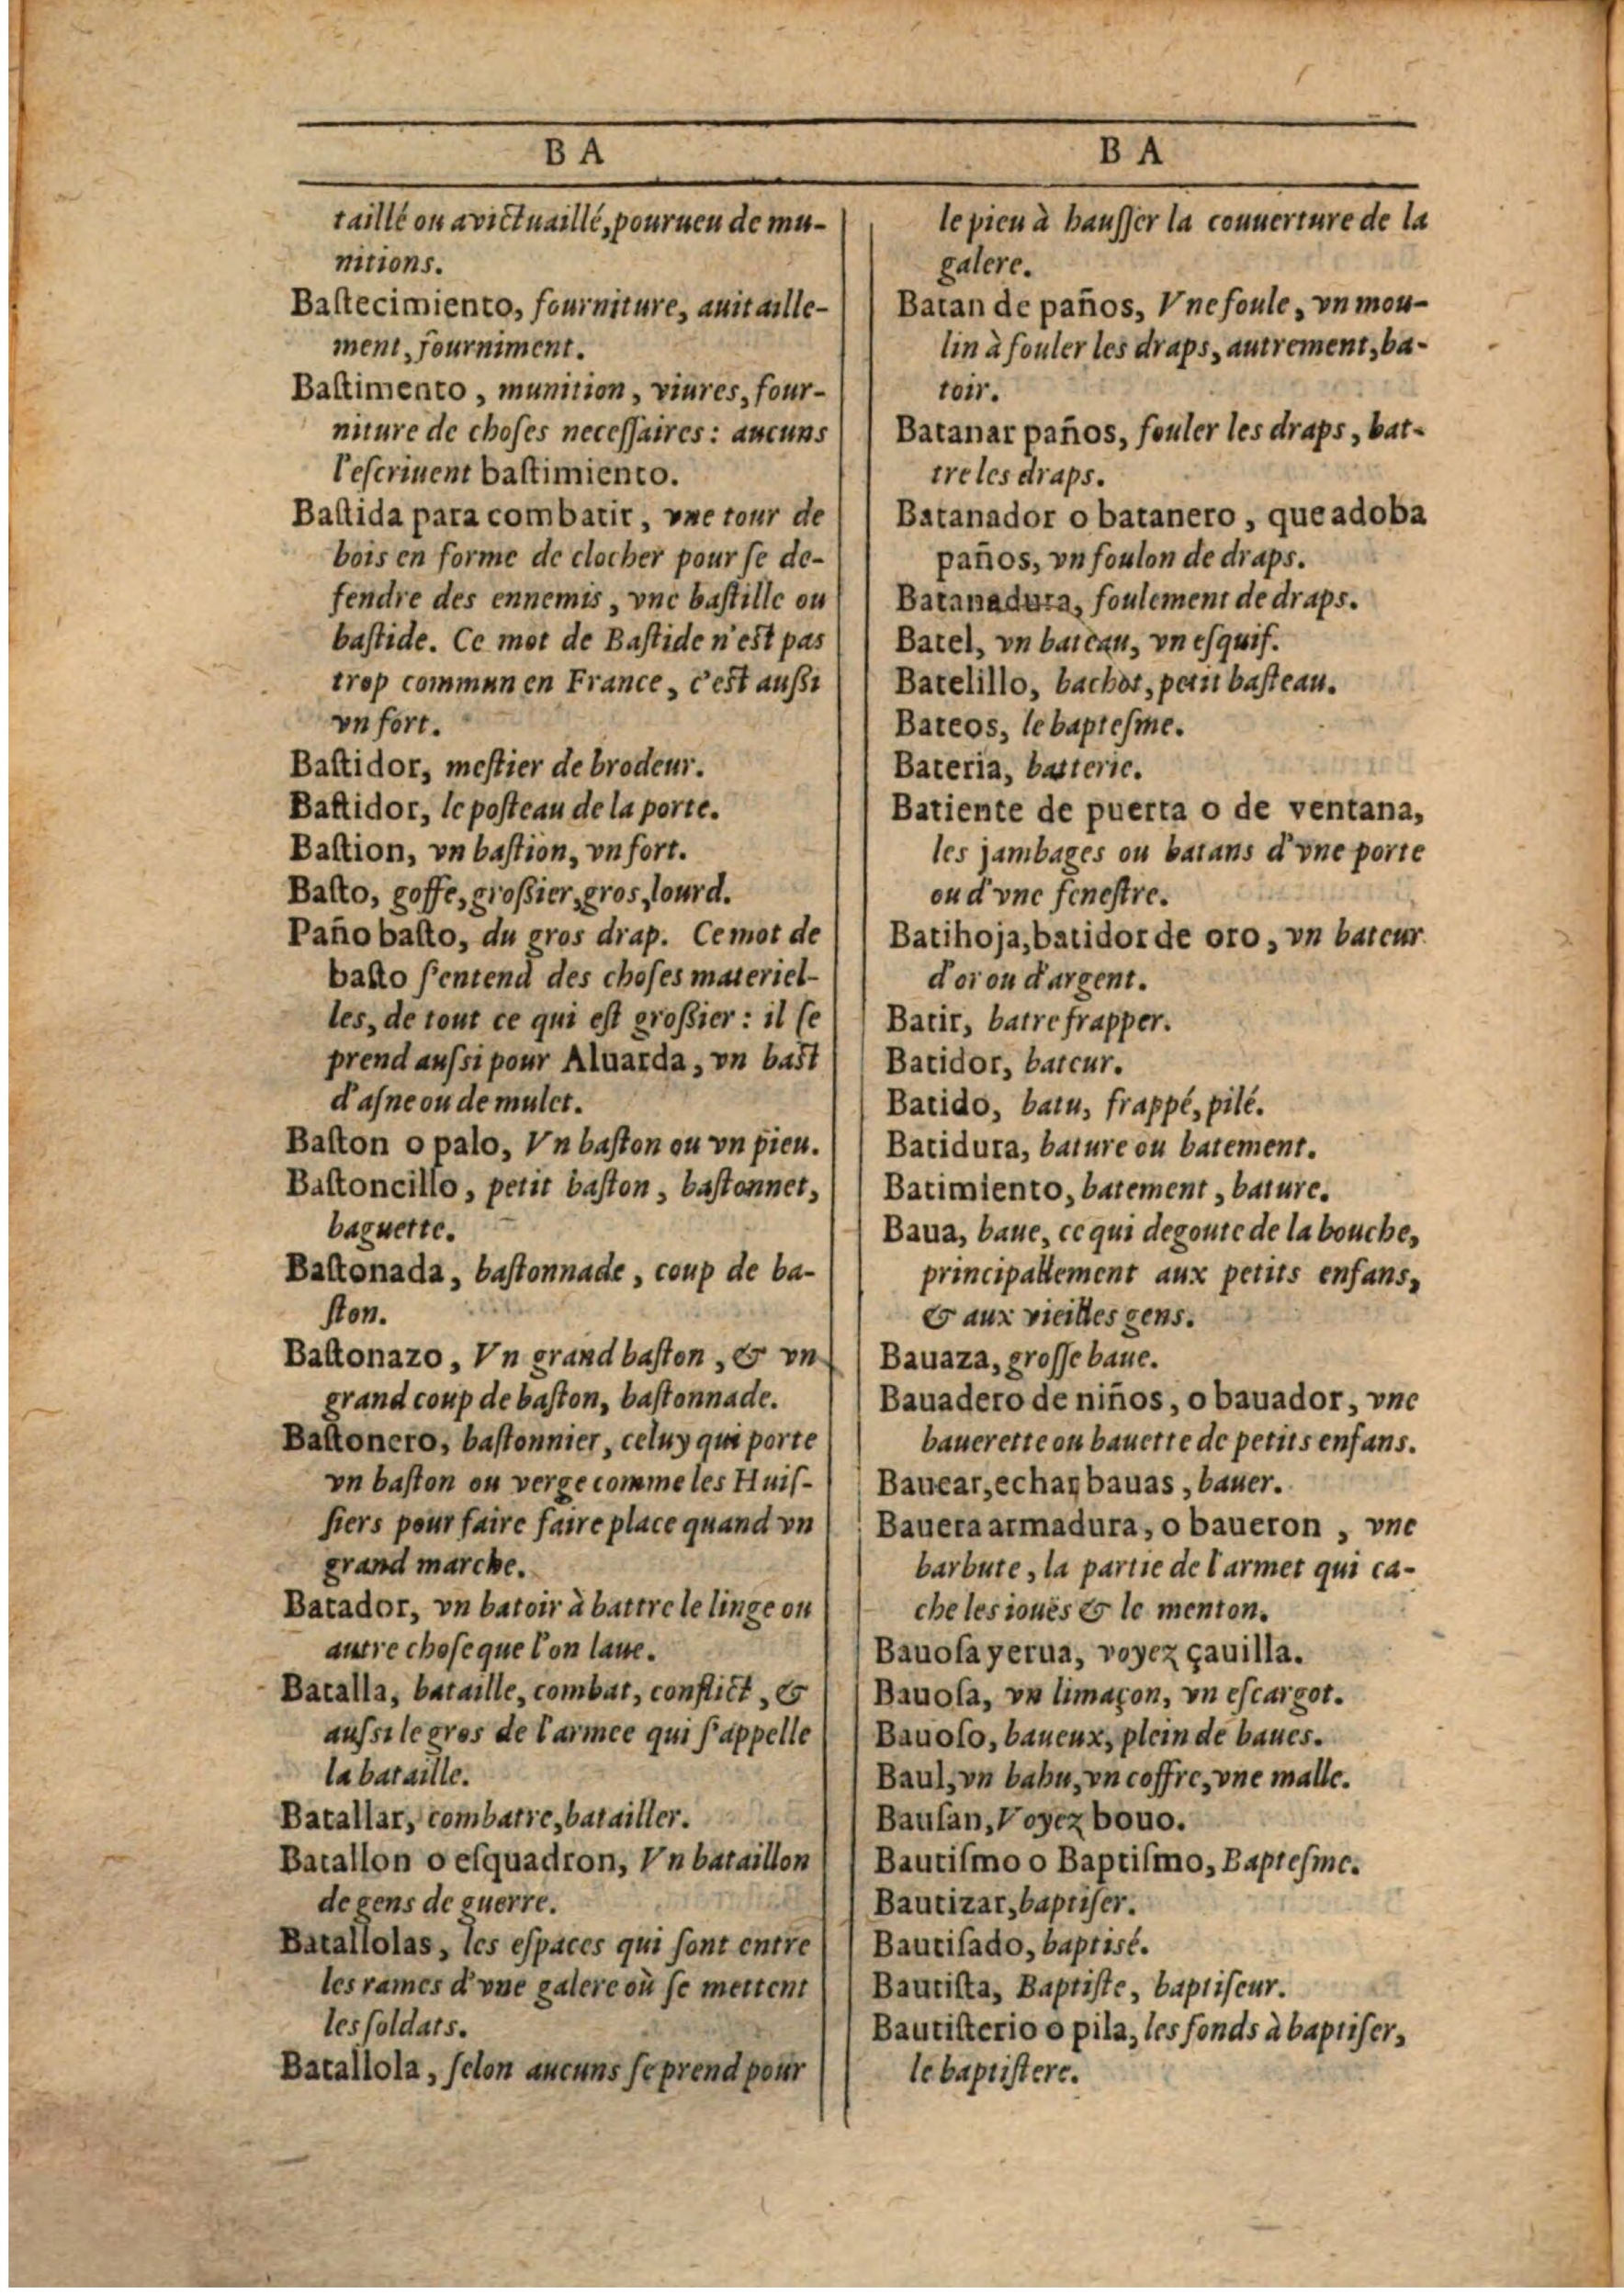 BA
taillé ou avictuaillé, pourueu de mu-
nitions.
Baſtecimiento, fourniture, auitaille-
ment, fourniment.
Baſtimento, munition, viures, four-
niture de choſes neceſſaires: aucuns
l'eſcriuent baſtimiento.
Baſtida para combatir, vne tour de
bois en forme de clocher pour ſe de-
fendre des ennemis, vne baſtille ou
baſtide. Ce mot de Baſtide n'eſt pas
trop commun en France, c'eſt auſsi
vn fort.
Baſtidor, meſtier de brodeur.
Baſtidor, le poſteau de la porte.
Baſtion, vn baſtion, vn fort.
Baſto, goffe, groſsier, gros, lourd.
Paño baſto, du gros drap. Ce mot de
baſto ſ'entend des choſes materiel-
les, de tout ce qui eſt groſsier: il ſe
prend auſsi pour Aluarda, vn baſt
d'aſne ou de mulet.
Baſton o palo, Vn baſton ou vn pieu.
Baſtoncillo, petit baſton, baſtonnet,
baguette.
Baſtonada, baſtonnade, coup de ba-
ſton.
Baſtonazo, Vn grand baſton, & vn
grand coup de baſton, baſtonnade.
Baſtonero, baſtonnier, celuy qui porte
vn baſton ou verge comme les Huiſ-
ſiers pour faire faire place quand vn
grand marche.
Batador, vn batoir à battre le linge ou
autre choſe que l'on laue.
Batalla, bataille, combat, conflict, &
auſsi le gros de l'armee qui ſ'appelle
la bataille.
Batallar, combatre, batailler.
Batallon o eſquadron, Vn bataillon
de gens de guerre.
Batallolas, les eſpaces qui ſont entre
les rames d'vne galere où ſe mettent
les ſoldats.
Batallola, ſelon aucuns ſe prend pour
BA
le pieu à hauſſer la couuerture de la
galere.
Batan de paños, Vne foule, vn mou-
lin à fouler les draps, autrement, ba-
toir.
Batanar paños, fouler les draps, bat-
tre les draps.
Batanador o batanero, que adoba
paños, vn foulon de draps.
Batanadura, foulement de draps.
Batel, vn bateau, vn eſquif.
Batelillo, bachot, petit baſteau.
Bateos, le bapteſme.
Bateria, batterie.
Batiente de puerta o de ventana,
les jambages ou batans d'vne porte
ou d'vne feneſtre.
Batihoja, batidor de oro, vn bateur
d'or ou d'argent.
Batir, batre frapper.
Batidor, bateur.
Batido, batu, frappé, pilé.
Batidura, bature ou batement.
Batimiento, batement, bature.
Baua, baue, ce qui degoute de la bouche,
principallement aux petits enfans,
& aux vieilles gens.
Bauaza, groſſe baue.
Bauadero de niños, o bauador, vne
bauerette ou bauette de petits enfans.
Bauear, echar bauas, bauer.
Bauera armadura, o baueron, vne
barbute, la partie de l'armet qui ca-
che les iouës & le menton.
Bauoſa yerua, voyez çauilla.
Bauoſa, vn limaçon, vn eſcargot.
Bauoſo, baueux, plein de baues.
Baul, vn bahu, vn coffre, vne malle.
Bauſan, Voyez bouo.
Bautiſmo o Baptiſmo, Bapteſme.
Bautizar, baptiſer.
Bautiſado, baptisé.
Bautiſta, Baptiſte, baptiſeur.
Bautiſterio o pila, les fonds à baptiſer,
le baptiſtere.